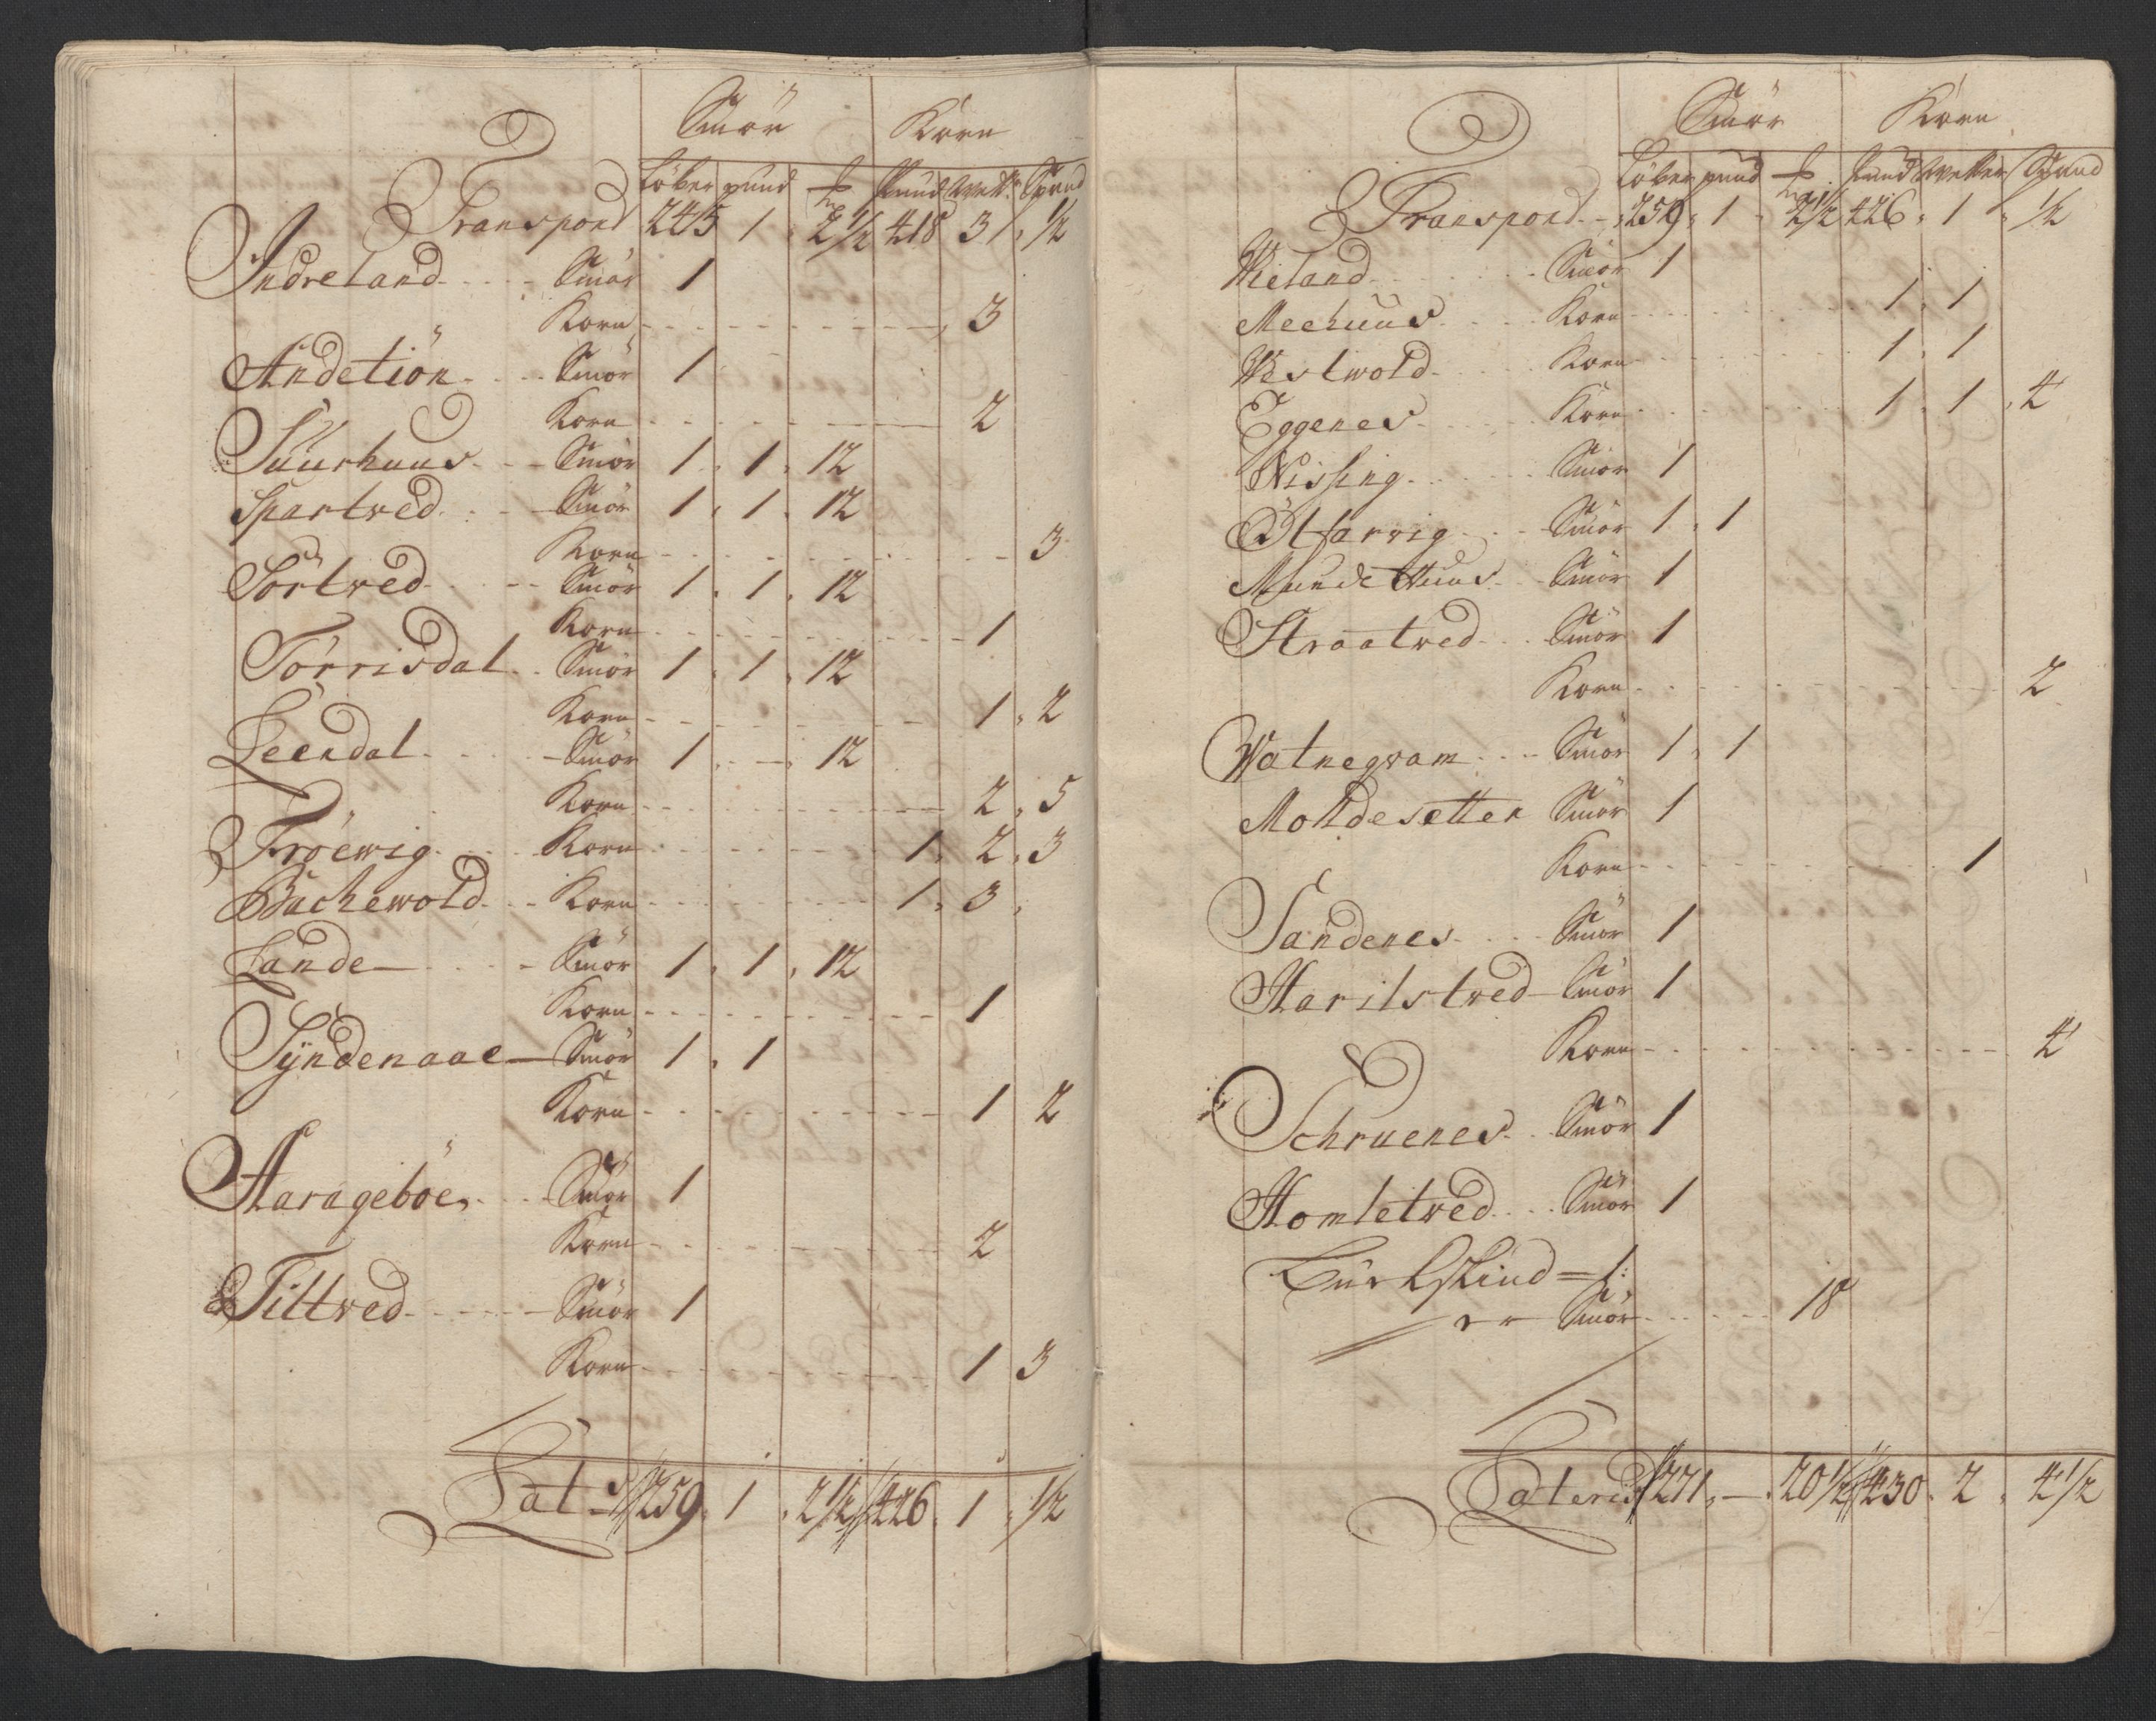 Smör Korn
Löber pund ℔ Pund Wett: Spand
Transport 245 1 2½ 418 3 ½
Indreland Smör 1
Korn 3
Andetiön Smör 1
Korn 2
Suurhuus Smör 1 1 12
Spartved Smör 1 1 12
Korn 3
Sörtved Smör 1 1 12
Korn 1
Törrisdal Smör 1 1 12
Korn 1 2
Leendal Smör 1 — 12
Korn 2 5
Fröewig Korn 1 2 3
Bachewold Korn 1 3
Lande Smör 1 1 12
Korn 1
Syndenaae Smör 1 1
Korn 1 2
Harageböe Smör 1
Korn 2
Tiltved Smör 1
Korn 1 3
Lat 259 1 2½ 426 1 ½
Smör Korn
Löber pund ℔ Pund Wetter Spand
Transport 259 1 2½ 426 1 ½
Wieland Smör 1
Meehuus Korn 1 1
Westwold Korn 1 1
Eggenes Korn 1 1 4
Nissing Smör 1
Smör 1 1
Mundehuus Smör 1
Straatved Smör 1
Korn 2
Watnegvam Smör 1 1
Moldesetter Smör 1
Korn 1
Sandenes Smör 1
Harilstved Smör 1
Korn 4
Schruenes Smör 1
Homletved Smör 1
1:
er Smör 18
Lateris 271 — 20½ 430 2 4½